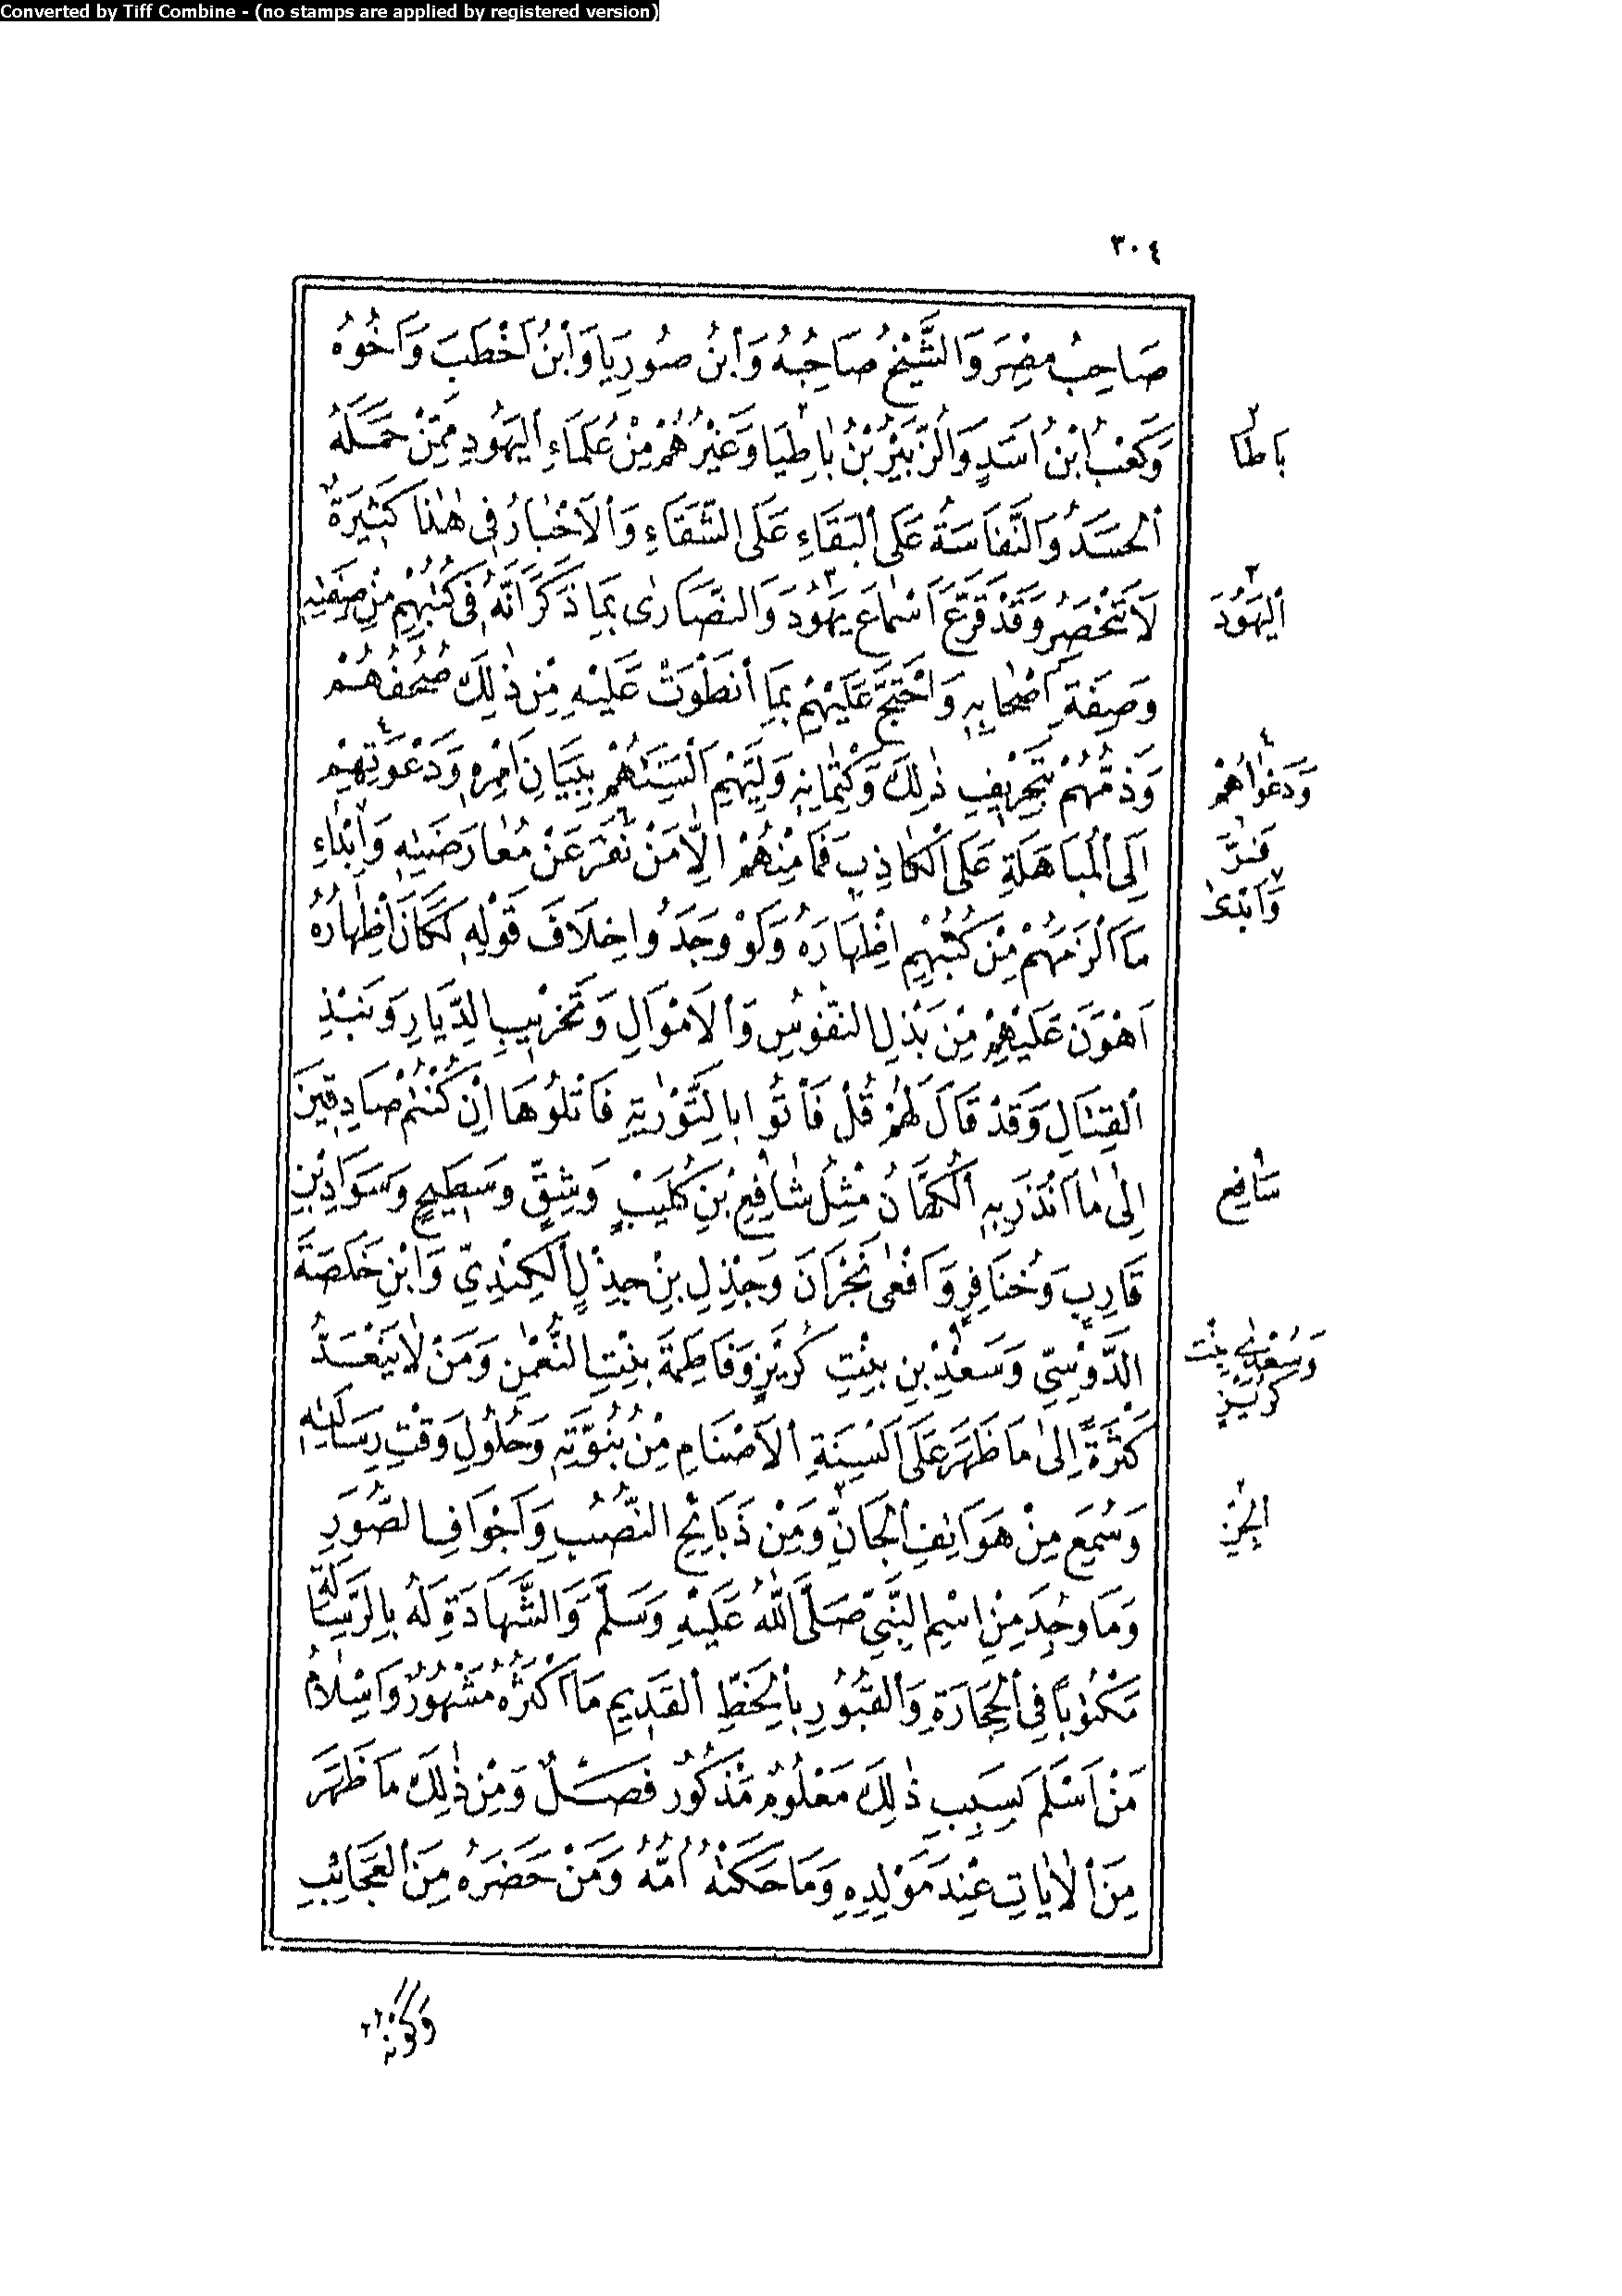 Converted by Tiff Combine - (no stamps are applied by registered version)
٣٠٤
صَاحِبُ مِصْرَ وَالشَّيْخُ صَاحِبُهُ وَابْنُ صُورِيَا وَابْنُ اَخْطَبَ وَاَخُوهُ
وَكَعْبُ ابْنُ اَسَدٍ وَالزُّبَيْرُ بْنُ بَاطِيَا وَغَيْرُهُمْ مِنْ عُلَمَاءِ الْيَهُودِ مِمَّنْ حَمَلَهُ
بَاطَا
الْحَسَدُ وَالنَّفَاسَةُ عَلَى الْبَقَاءِ عَلَى الشَّقَاءِ وَالْاَخْبَارُ فِى هٰذَا كَثِيرَةٌ
لَا تَنْحَصِرُ وَقَدْ قَرَّعَ اَسْمَاعَ يَهُودَ وَالنَّصَارٰى بِمَا ذَكَرَ اَنَّهُ فِى كُتُبِهِمْ مِنْ صِفَتِهِ
الْيَهُودَ
وَصِفَةِ اَصْحَابِهِ وَاحْتَجَّ عَلَيْهِمْ بِمَا انْطَوَتْ عَلَيْهِ مِنْ ذٰلِكَ صُحُفُهُمْ
وَذَمَّهُمْ بِتَحْرِيفِ ذٰلِكَ وَكِتْمَانِهِ وَلَيِّهِمْ اَلْسِنَتَهُمْ بِبَيَانِ اَمْرِهِ وَدَعْوَتِهِمْ
وَدَعْوَاهُمْ
اِلَى الْمُبَاهَلَةِ عَلَى الْكَاذِبِ فَمَا مِنْهُمْ اِلَّا مَنْ نَفَرَ عَنْ مُعَارَضَتِهِ وَاِبْدَاءِ
فَرَّ
وَاَبْدٰى
مَا اَلْزَمَهُمْ مِنْ كُتُبِهِمْ اِظْهَارَهُ وَلَوْ وَجَدُوا خِلَافَ قَوْلِهِ لَكَانَ اِظْهَارُهُ
اَهْوَنَ عَلَيْهِمْ مِنْ بَذْلِ النُّفُوسِ وَالْاَمْوَالِ وَتَخْرِيبِ الدِّيَارِ وَنَبْذِ
الْقِتَالِ وَقَدْ قَالَ لَهُمْ قُلْ فَأْتُوا بِالتَّوْرٰيةِ فَاتْلُوهَا اِنْ كُنْتُمْ صَادِقِينَ
اِلٰى مَا اَنْذَرَ بِهِ الْكُهَّانُ مِثْلُ شَافِعِ بْنِ كُلَيْبٍ وَشِقٍّ وَسَطِيحٍ وَسَوَادِ بْنِ
سَافِع
قَارِبٍ وَخُنَافِرٍ وَاَفْعٰى نَجْرَانَ وَجِذْلِ بْنِ جِذْلٍ الْكِنْدِيِّ وَابْنِ خَلَصَةَ
الدَّوْسِيِّ وَسَعْدِ بْنِ بِنْتِ كُرَيْزٍ وَفَاطِمَةَ بِنْتِ النُّعْمٰنِ وَمَنْ لَا يَنْعَدُّ
وَسُعْدٰى بِنْت
كُرَيْزٍ
كَثْرَةً اِلٰى مَا ظَهَرَ عَلَى اَلْسِنَةِ الْاَصْنَامِ مِنْ نُبُوَّتِهِ وَحُلُولِ وَقْتِ رِسَالَتِهِ
وَسُمِعَ مِنْ هَوَاتِفِ الْجَانِّ وَمِنْ ذَبَائِحِ النُّصُبِ وَاَجْوَافِ الصُّوَرِ
الْجِنِّ
وَمَا وُجِدَ مِنِ اسْمِ النَّبِيِّ صَلَّى اللّٰهُ عَلَيْهِ وَسَلَّمَ وَالشَّهَادَةِ لَهُ بِالرِّسَالَةِ
مَكْتُوبًا فِى الْحِجَارَةِ وَالْقُبُورِ بِالْخَطِّ الْقَدِيمِ مَا اَكْثَرُهُ مَشْهُورٌ وَاِسْلَامُ
مَنْ اَسْلَمَ بِسَبَبِ ذٰلِكَ مَعْلُومٌ مَذْكُورٌ فَصْلٌ وَمِنْ ذٰلِكَ مَا ظَهَرَ
مِنَ الْاٰيَاتِ عِنْدَ مَوْلِدِهِ وَمَا حَكَتْهُ اُمُّهُ وَمَنْ حَضَرَهُ مِنَ الْعَجَائِبِ
وَكَوْنُهُ